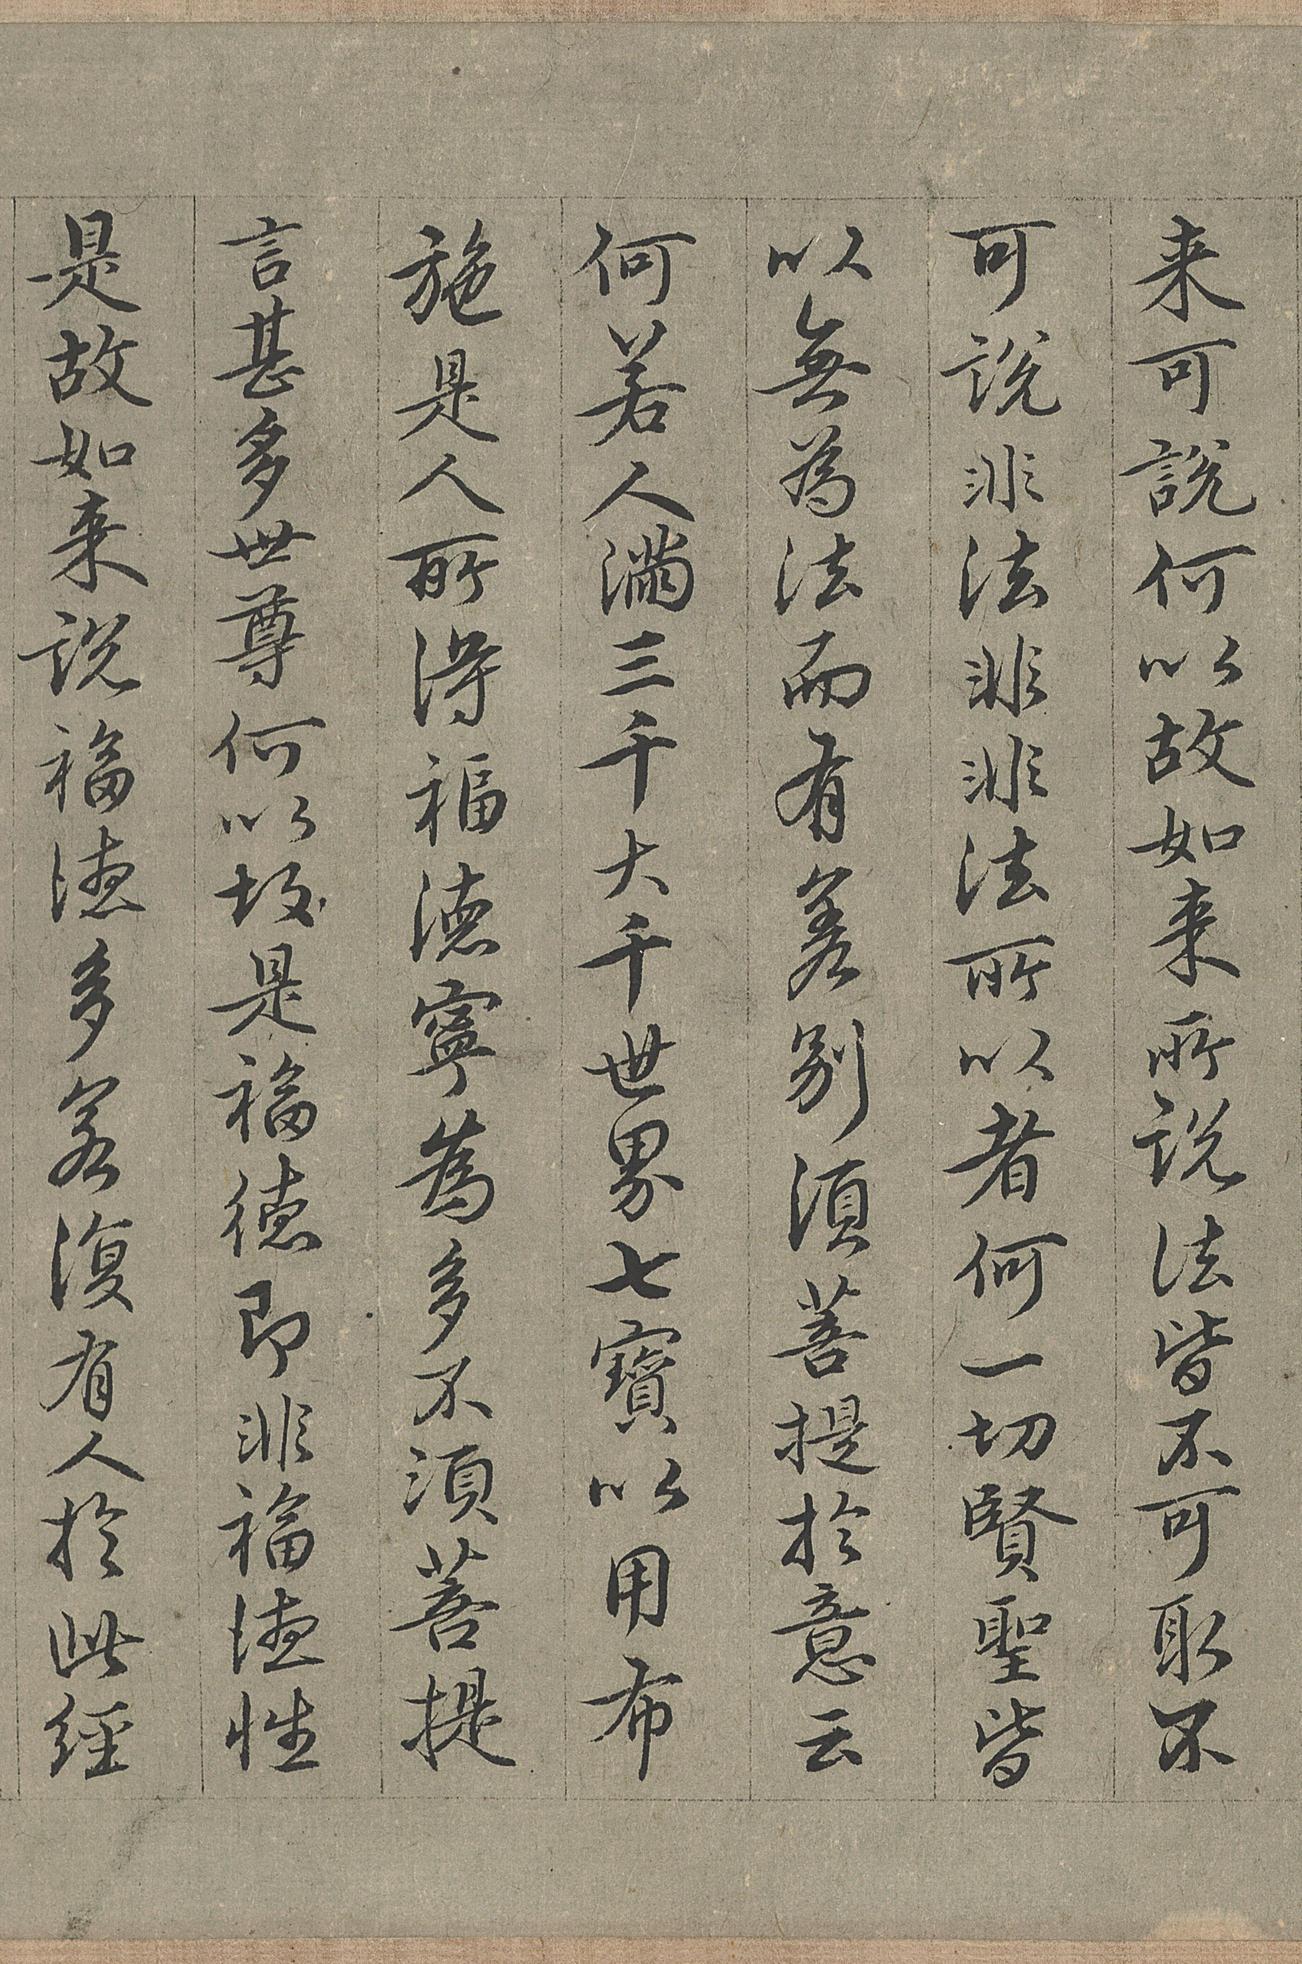 来可說何以故如来所說法皆不可取不
可說非法非非法所以者何一切賢聖皆
以無為法而有差别須菩提於意云
何若人滿三千大千世界七寶以用布
施是人所得福德寧為多不須菩提
言甚多世尊何以故是福德即非福德性
是故如来說福德多若復有人於此經